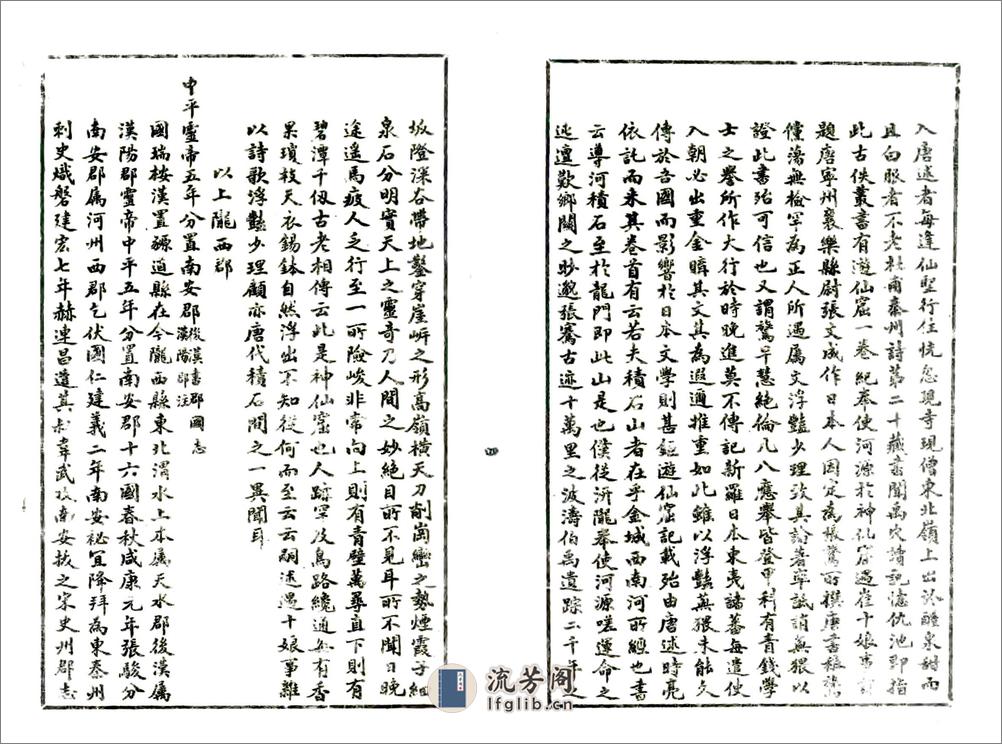 入唐述者每逢仙聖行住恍忽現寺現僧東北嶺上出於醴泉甜而
且白服者不老杜甫秦州詩第二十藏書聞禹穴讀記憶仇池即指
此古佚叢書有遊仙窟一卷紀奉使河源於神仙窟遇崔十娘事前
題唐寧州襄樂縣尉張文成作日本人因定為張鷟所撰唐書稱鷟
儻蕩無檢罕為正人所遇屬文浮豔少理致其論著率詆誚蕪猥以
證此書殆可信也又謂鷟早慧絕倫凡八應舉皆登甲科有青錢學
士之譽所作大行於時晚進莫不傳記新羅日本東夷諸蕃每遣使
入朝必出重金購其文其為遐邇推重如此雖以浮豔蕪猥未能久
傳於吾國而影響於日本文學則甚鉅遊仙窟記載殆由唐述時亮
依託而來其卷首有云若夫積石山者在乎金城西南河所經也書
云導河積石至於龍門即此山是也僕從汧隴奉使河源嗟運命之
迍邅歎鄉關之眇邈張騫古迹十萬里之波濤伯禹遺踪二千年之
四
坂隥深谷帶地鑿穿崖岍之形高嶺橫天刀削崗巒之勢煙霞子細
泉石分明實天上之靈奇乃人間之妙絕目所不見耳所不聞日晚
途遙馬疲人乏行至一所險峻非常向上則有青壁萬尋直下則有
碧潭千仞古老相傳云此是神仙窟也人跡罕及鳥路纔通每有香
果瓊枝天衣錫鉢自然浮出不知從何而至云云嗣述遇十娘事雖
以詩歌浮豔少理顧亦唐代積石間之一異聞耳
以上隴西郡
中平靈帝五年分置南安郡後漢書郡國志漢陽郡注
國瑞桉漢置豲道縣在今隴西縣東北渭水上本屬天水郡後漢屬
漢陽郡靈帝中平五年分置南安郡十六國春秋咸康元年張駿分
南安郡屬河州西郡乞伏國仁建義二年南安祕宜降拜為東秦州
刺史熾磐建宏七年赫連昌遣其叔韋武攻南安拔之宋史州郡志
流芳阁
lfglib.cn